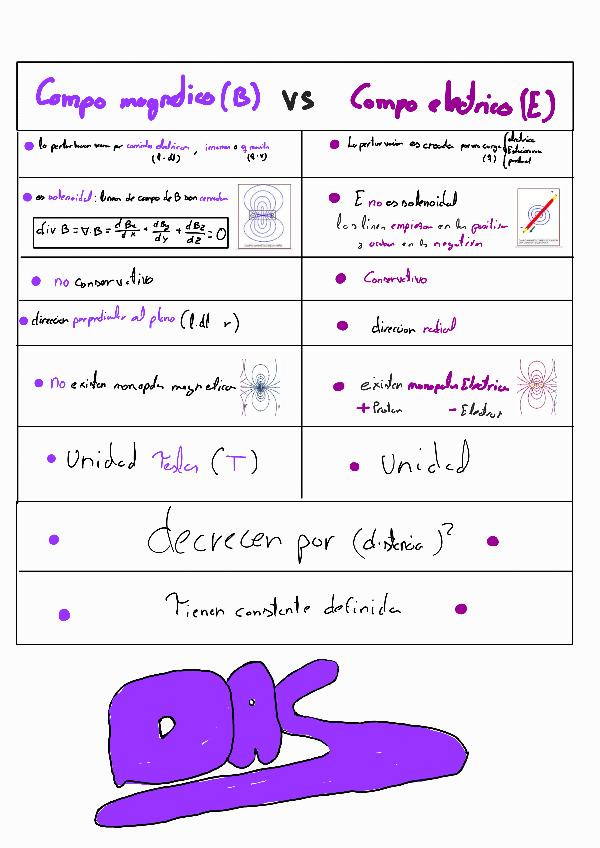 Campo magnético (B) vs Campo eléctrico (E)
la perturbacion viene por corriente eléctricas,
(I · dl) (q · v)
La perturbacion es creada por una carga
(q)
eléctrica
puntual
es solenoidal: lineas de campo de B son cerradas
div B = ∇·B = dBx/dx + dBy/dy + dBz/dz = 0
E no es solenoidal
las linea empiezan en las positivas
y acaban en la negativa
no conservativo
Conservativo
direccion perpendicular al plano (I.dl r)
direccion radial
No existen monopolos magneticos
existen monopolos Electricos
+ Proton - Electron
Unidad Teslas (T)
Unidad
decrecen por (distancia)²
Tienen constante definida
DAS